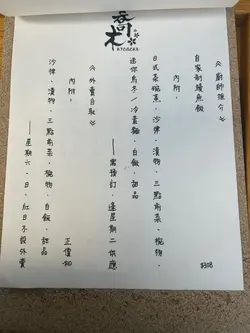 喬木
KYOBOKU
《廚師推介》
自家制鰻魚飯 $308
內附：
日式茶碗蒸、沙律、漬物、三點前菜、椀物、
迷你烏冬/冷素麵、白飯、甜品
——需預訂，逢星期二供應
《外賣自取》
內附： 正價9折
沙律、漬物、三點前菜、椀物、白飯、甜品
——星期六、日、紅日不設外賣